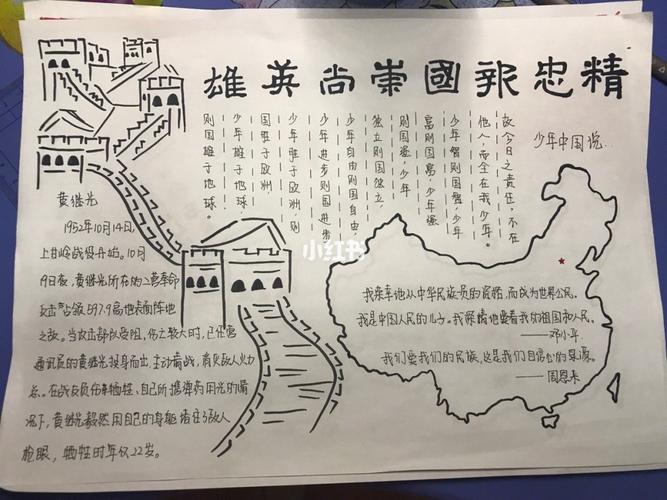 精忠報國崇尚英雄
少年中国说
故今日之责任,不在
他人,而全在我少年。
少年智则国智,少年
富则国富,少年强
则国强,少年
独立则国独立,
少年自由则国自由,
少年进步则国进步
少年胜于欧洲,则
国胜于欧洲,
少年雄于地球,
则国雄于地球。
黄继光
1952年10月14日,
上甘岭战役开始。10月
19日夜,黄继光所在的二营奉命
攻击占领597.9高地表面阵地
之敌。当攻击部队受阻,伤亡较大时,已任营
通讯员的黄继光挺身而出,主动请战,消灭敌人火力
点。在战友负伤牺牲、自己所携弹药用光的情
况下,黄继光毅然用自己的身躯堵住了敌人
枪眼,牺牲时年仅22岁。
我荣幸地从中华民族一员的资格,而成为世界公民。
我是中国人民的儿子。我深情地爱着我的祖国和人民。
——邓小平
我们爱我们的民族,这是我们自信心的泉源。
——周恩来
小红书